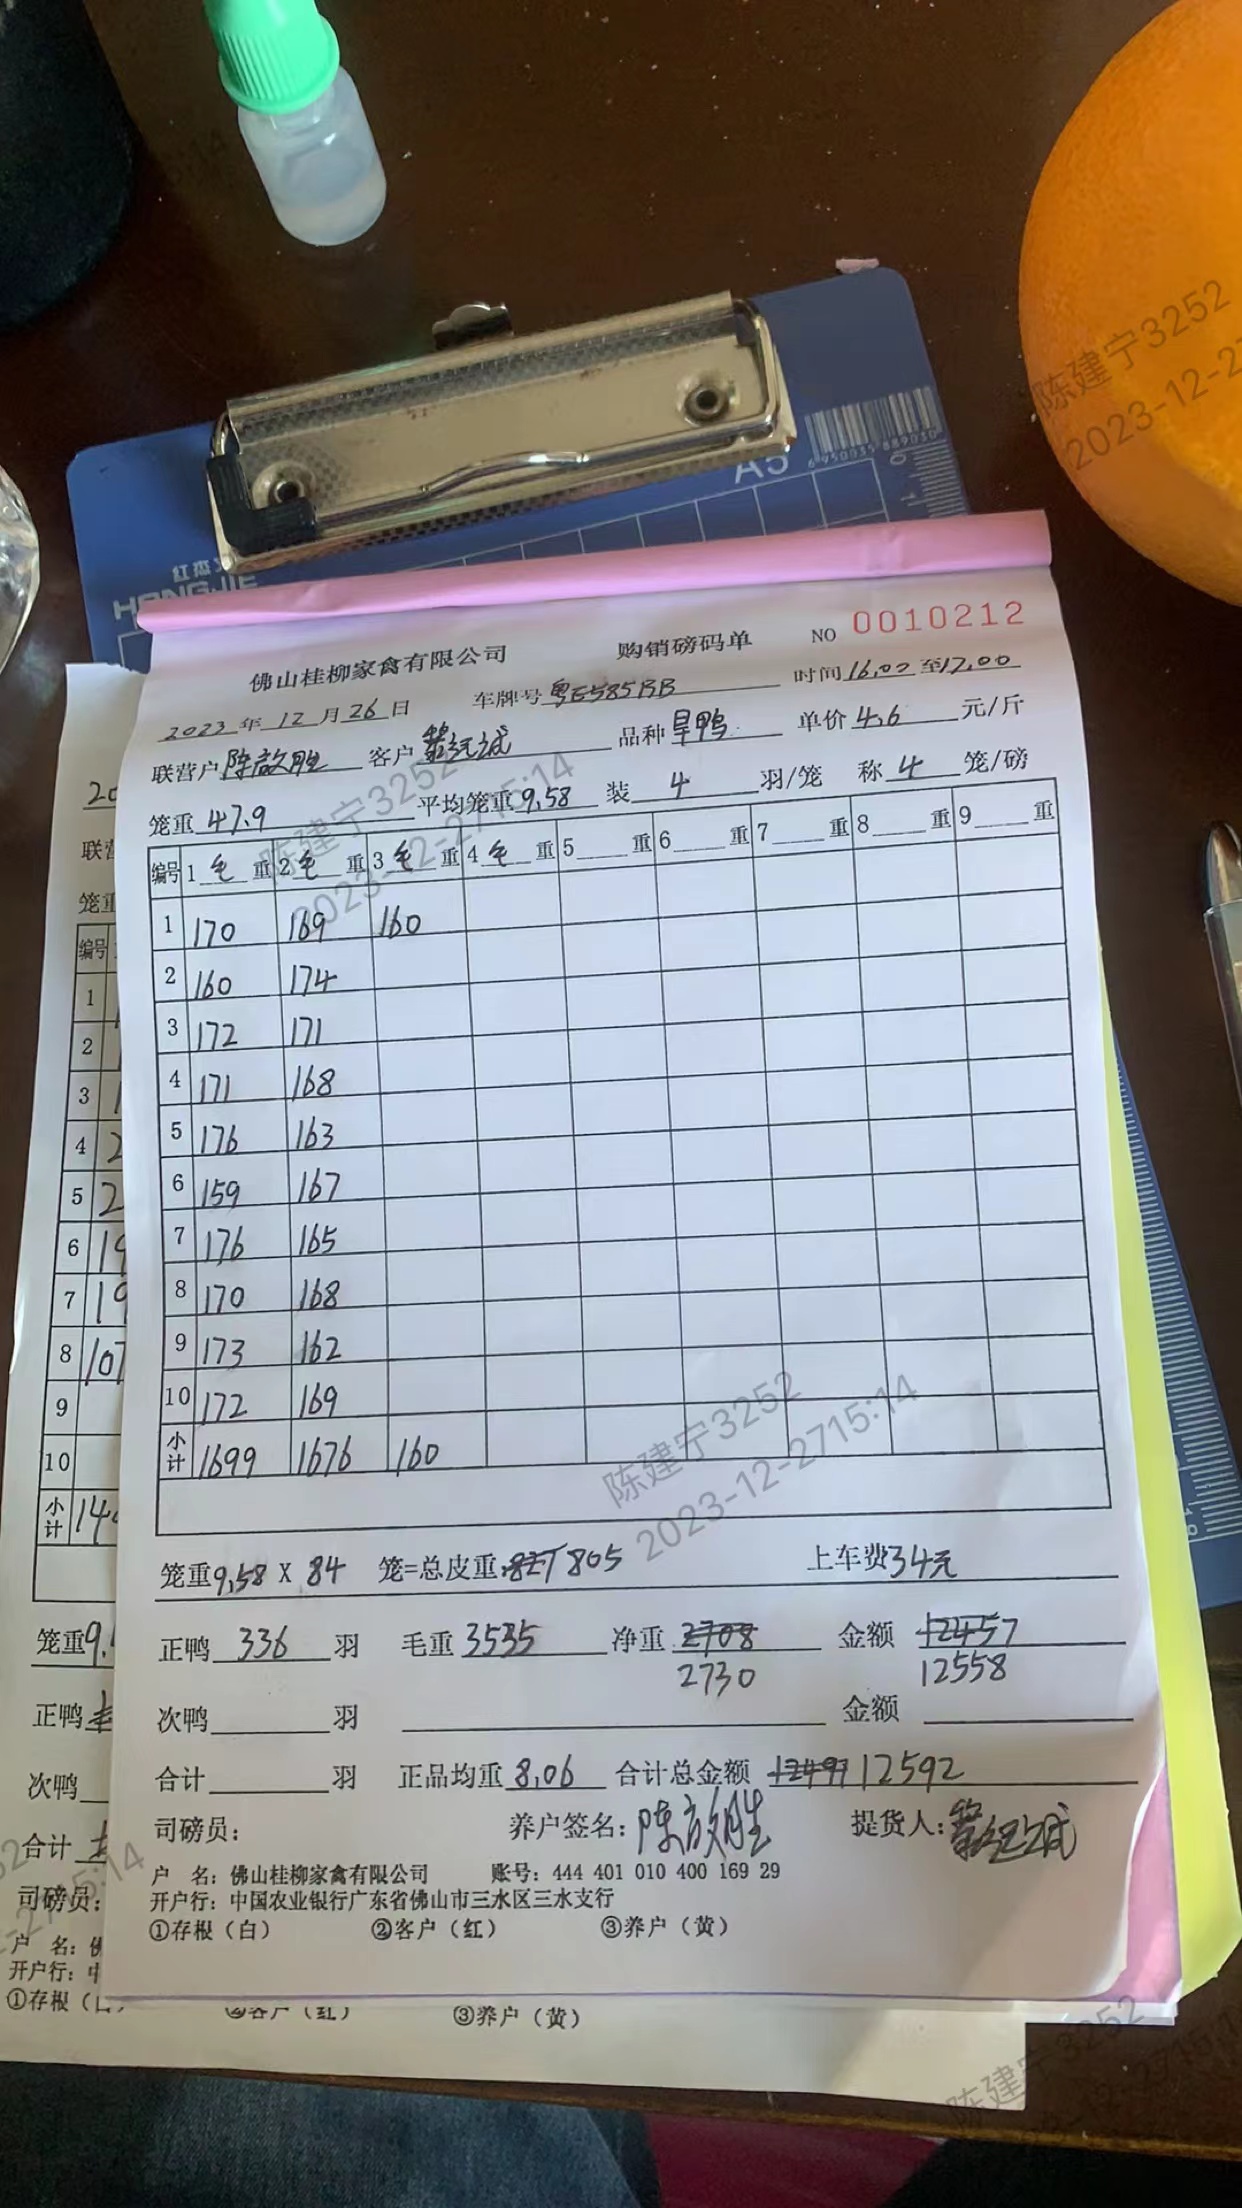 A5
6 950035 889030
红杰
HONGJIE
佛山桂柳家禽有限公司 购销磅码单 NO 0010212
2023年12月26日 车牌号粤E585BB 时间16.00至17.00
联营户陈启胜 客户 品种旱鸭 单价4.6元/斤
笼重47.9 平均笼重9.58 装4羽/笼 称4笼/磅
编号 1毛重 2毛重 3毛重 4毛重 5重 6重 7重 8重 9重
1 170 169 160
2 160 174
3 172 171
4 171 168
5 176 163
6 159 167
7 176 165
8 170 168
9 173 162
10 172 169
小计 1699 1676 160
笼重9.58X84笼=总皮重:827 805 上车费34元
正鸭336羽 毛重3535 净重2708 金额12457
2730 12558
次鸭羽 金额
合计羽 正品均重8.06 合计总金额12491 12592
司磅员: 养户签名:陈启胜 提货人:
户 名:佛山桂柳家禽有限公司 账号:444 401 010 400 169 29
开户行:中国农业银行广东省佛山市三水区三水支行
①存根(白) ②客户(红) ③养户(黄)
20
联营
笼重
编号
1
2
3
4 2
5 2
6 19
7 19
8 107
9
10
小计 14
笼重9.
正鸭
次鸭
合计
司磅员:
户 名:佛
开户行:中
①存根(白) ②客户(红) ③养户(黄)
陈建宁3252
2023-12-2715:14
陈建宁3252
2023-12-27
陈建宁3252
2023-12-2715:14
陈建宁3252